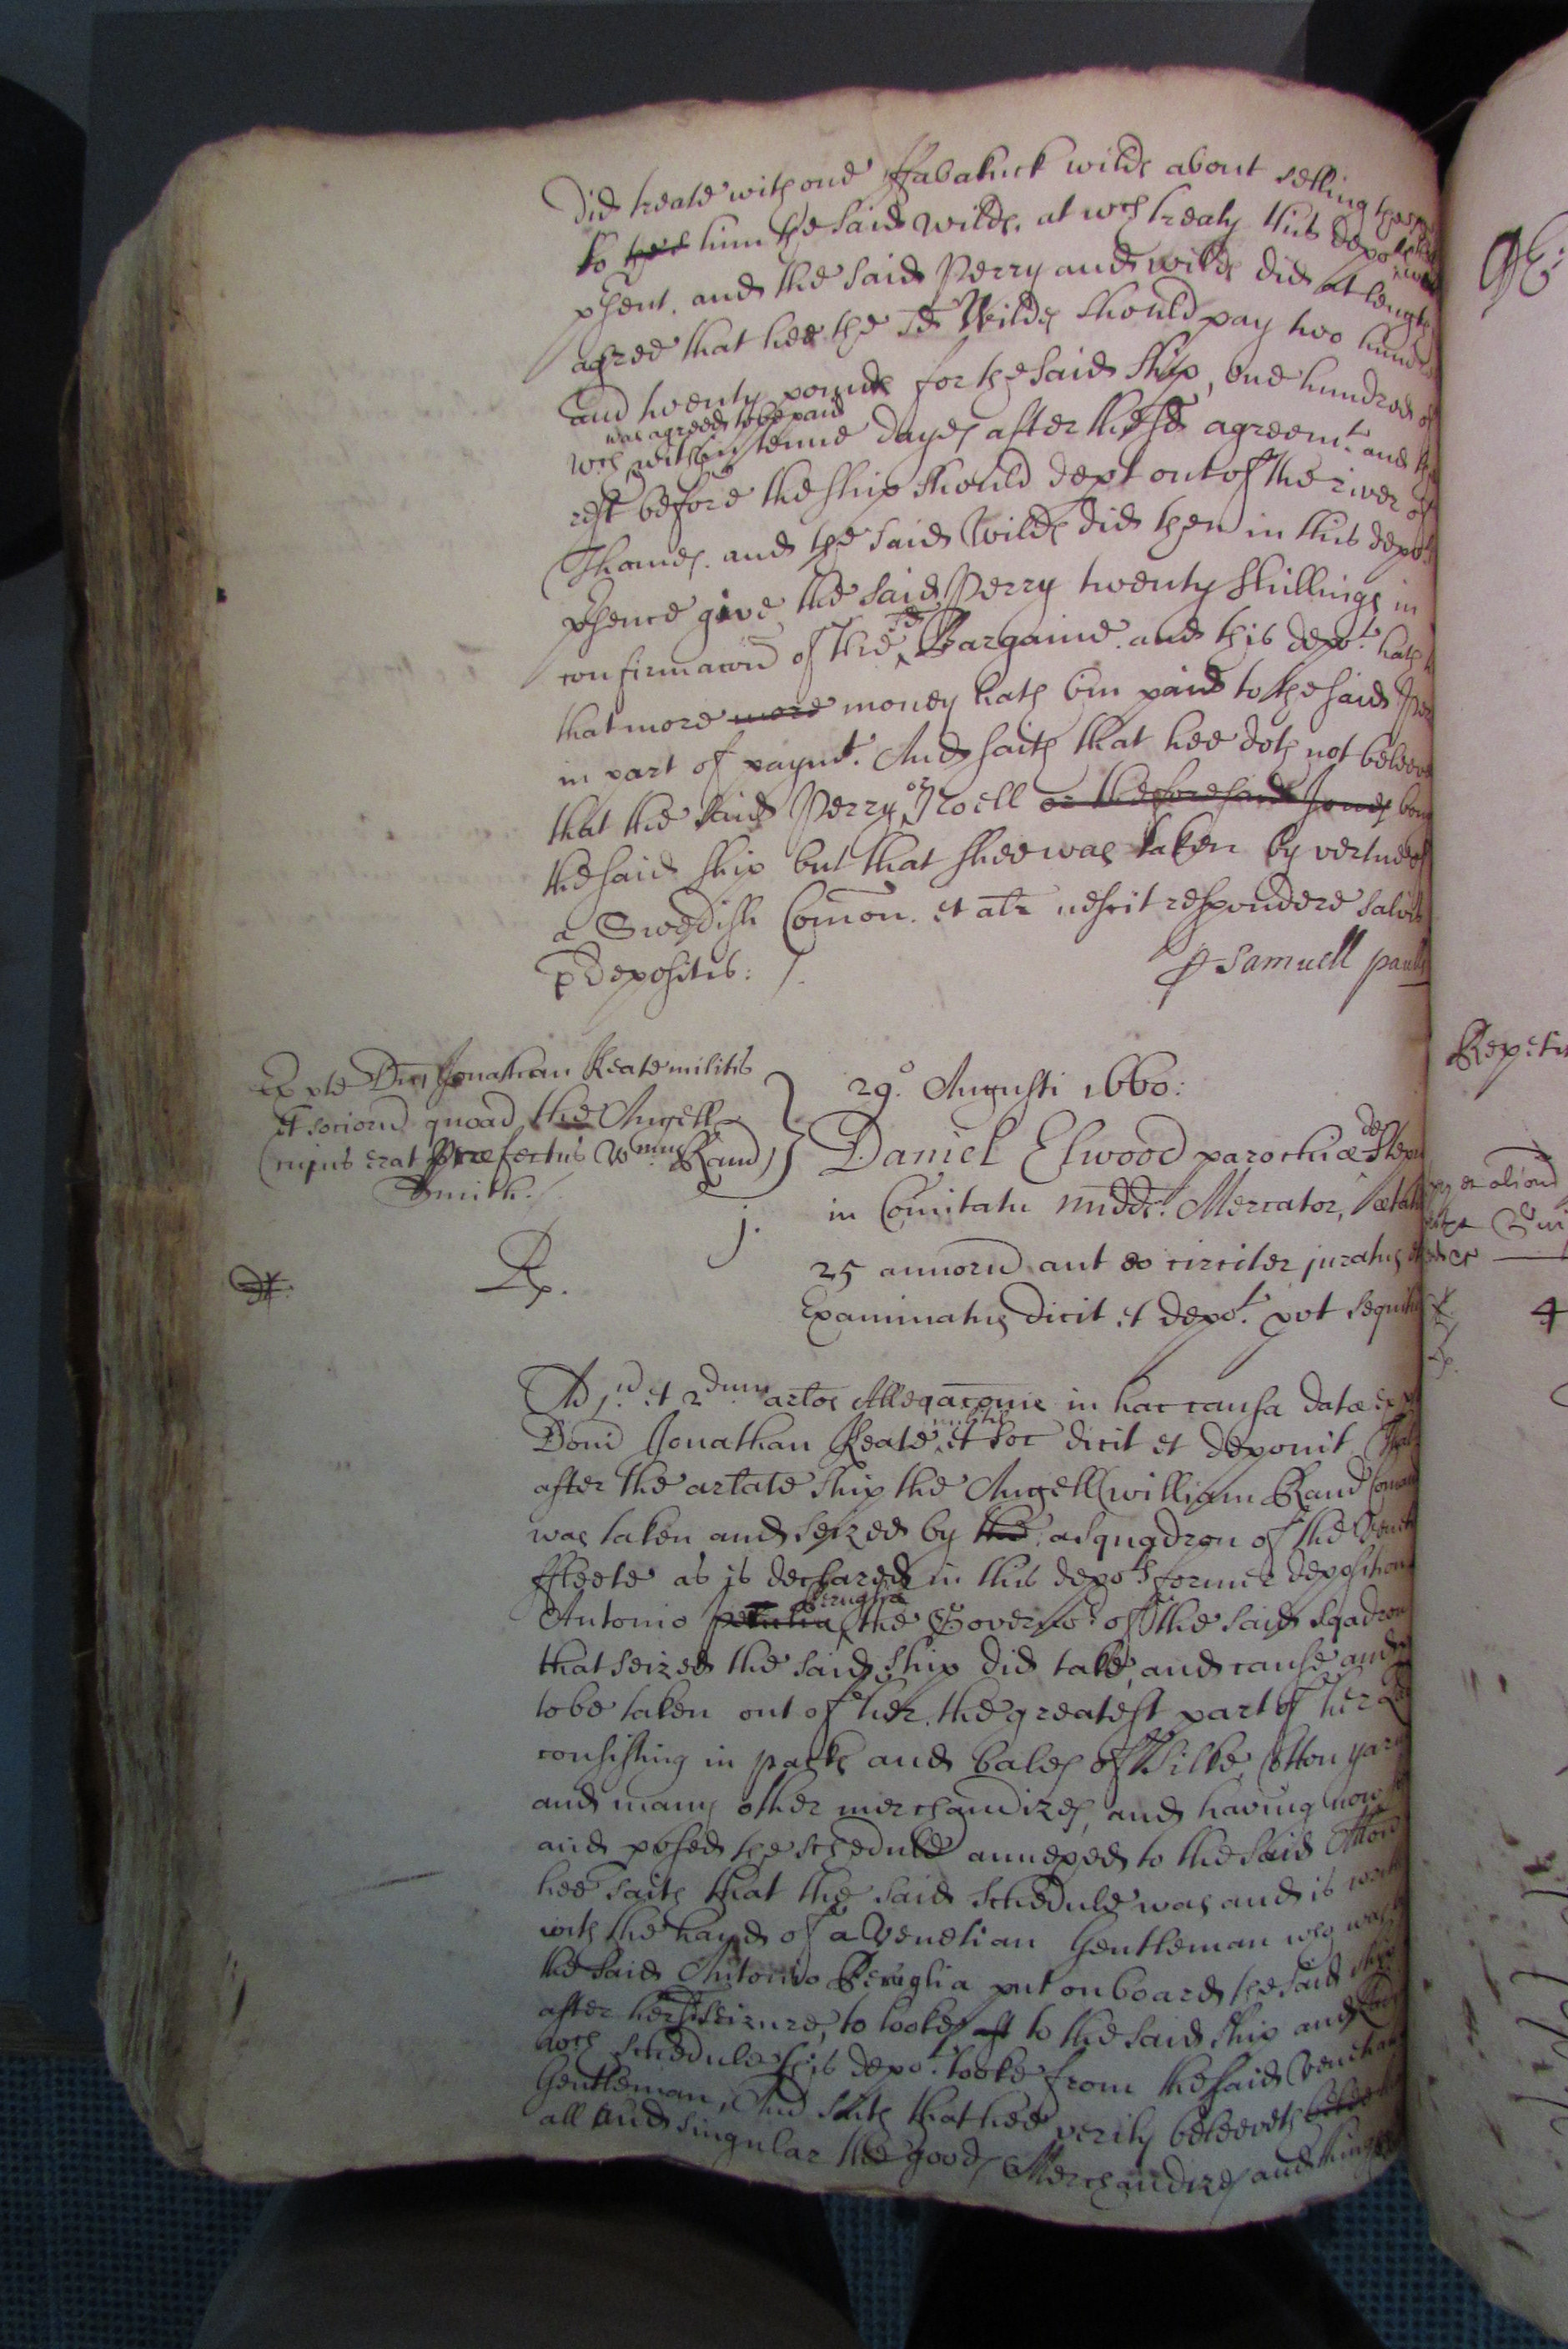 did treate with one Habakuck wilds about selling the
to him the said wilds, at wch treaty this depot
pñent, and the said Perry and wilds did at length
agree that hee the sd Wilds should pay two hund
and twenty pounds for the said ship, one hundred of
was agreed to be paid
wch within tenne dayes after the sd agreemt. and the
rest before the ship should dept out of the river of
Thames. and the said Wilds did then in this depots
pñence give the said Perry twenty shillings in
confirmacon of the sd Bargaine. and this depot. hath
that more more money hath bin paid to the said Per
in part of paymt. And saith that hee doth not beleeve
that the said Perry or Noell or the foresaid Jones
the said ship but that shee was taken by vertue of
a Swedish Comon. et alr nescit respondere salvis
p depositis: /.
Samuell
Ex pte Dni Jonathan Keate militis
et sociorū quoad the Angell
(cujus erat Præfectus Wmus Rand)
Smith./
29o. Augusti 1660:
Daniel Elwood parochiæ de Stepn
in Comitatu Middx. Mercator, ætat
j.
25 annorū aut eo circiter juratus et
Rp.
Examinatus dicit et depot. put sequit
Ad j.ū et 2dum artos Allegaconis in hac causa datæ ex
Domi Jonathan Keate militis et soc dicit et deponit That
after the artate ship the Angell (william Rand Coman
was taken and seized by the a squadron of the
ffleete as is declared in this depots former deposition
Antonio Beruglia the Governor. of the said sqadron
that seized the said ship did take, and cause and
to be taken out of her, the greatest part of her
consisting in packs and bales of silke, Cotton yarn
and many other merchandizes, and having now
and pused the schedule annexed to the said
hee saith that the said schedule was and is
with the hand of a Venetian Gentleman wch was
the said Antonio Beruglia put onboard the said ship
after her sd seizure, to looke aft to the said ship and
wch schedule this depot. tooke from the said Venetian
Gentleman, And saith that hee verily beleeveth
all and singular the goods Merchandizes and things
Repetit
4